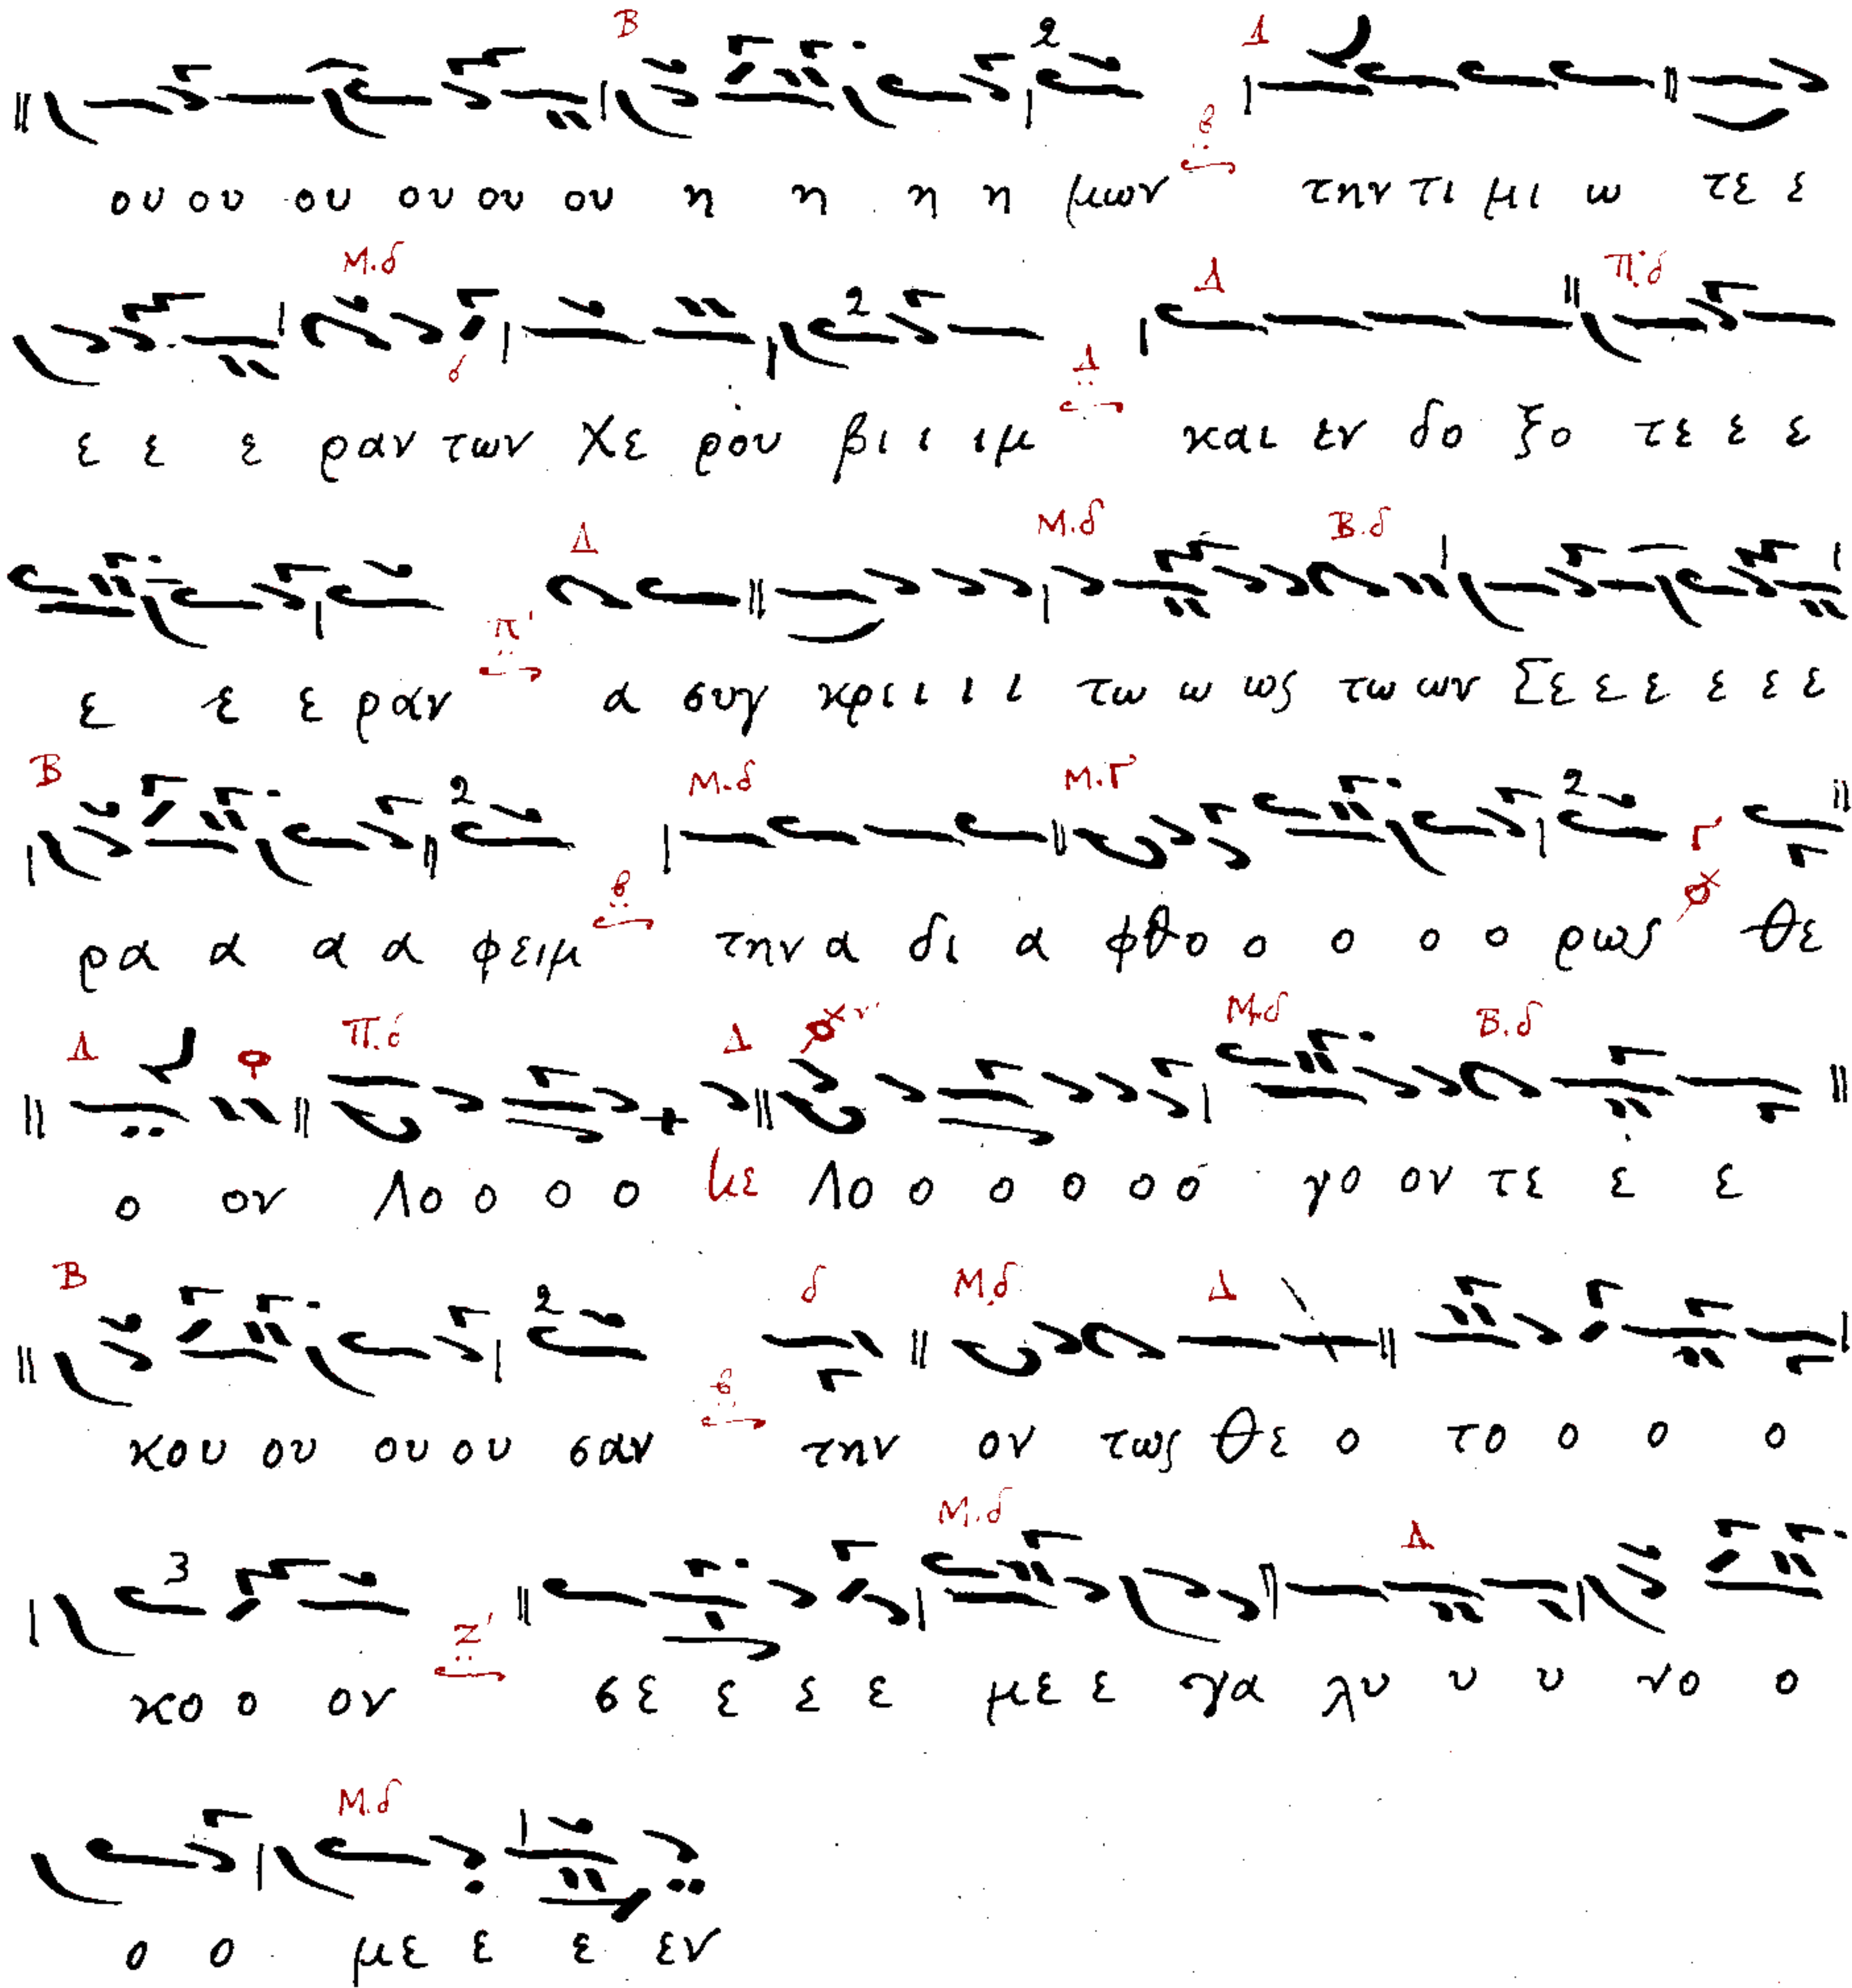 Β 2 Δ
ου ου ου ου ου ου η η η η μων β την τι μι ω τε ε
Μ.δ 2 Δ Π.δ
ε ε ε ραν των Χε ρου βι ι ιμ Δ και εν δο ξο τε ε ε
Δ Μ.δ Β.δ
ε ε ε ραν π' α συγ κρι ι ι ι τω ω ως τω ων Σε ε ε ε ε ε
Β 2 Μ.δ Μ.Γ 2 Γ
ρα α α α φειμ β την α δι α φθο ο ο ο ο ρως θε
Δ Π.δ Δ Μ.δ Β.δ
ο ον Λο ο ο ο με Λο ο ο ο ο ο γο ον τε ε ε
Β 2 δ Μ.δ Δ
κου ου ου ου σαν β την ον τως θε ο το ο ο ο
3 Μ.δ Δ
κο ο ον Ζ' σε ε ε ε με ε γα λυ υ υ νο ο
Μ.δ
ο ο με ε ε εν